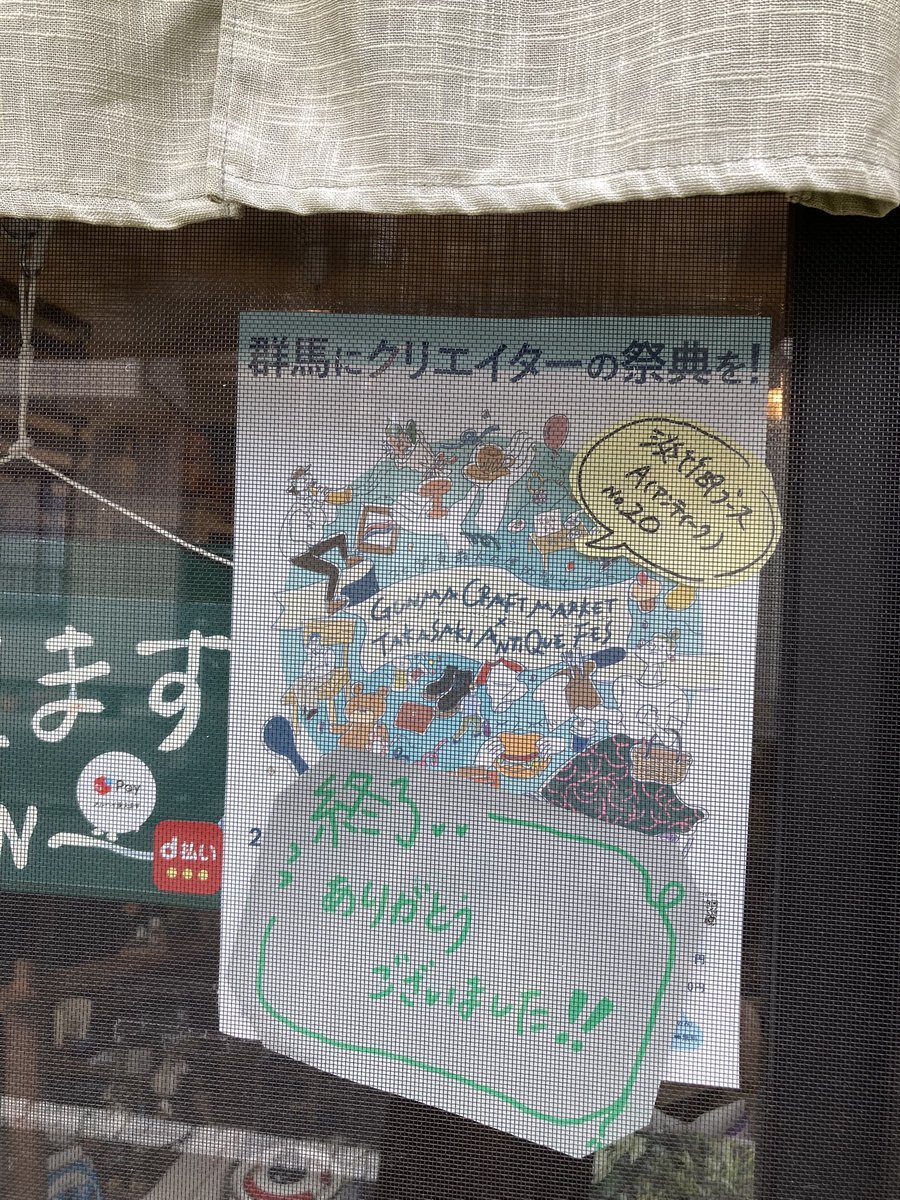 群馬にクリエイターの祭典を!
ブース
A(アンティーク)
No.20
GUNMA CRAFT MARKET
×
TAKASAKI ANTIQUE FES
ます
Pay
d払い
N
2
終了..
ありがとう
ございました!!
円
0円